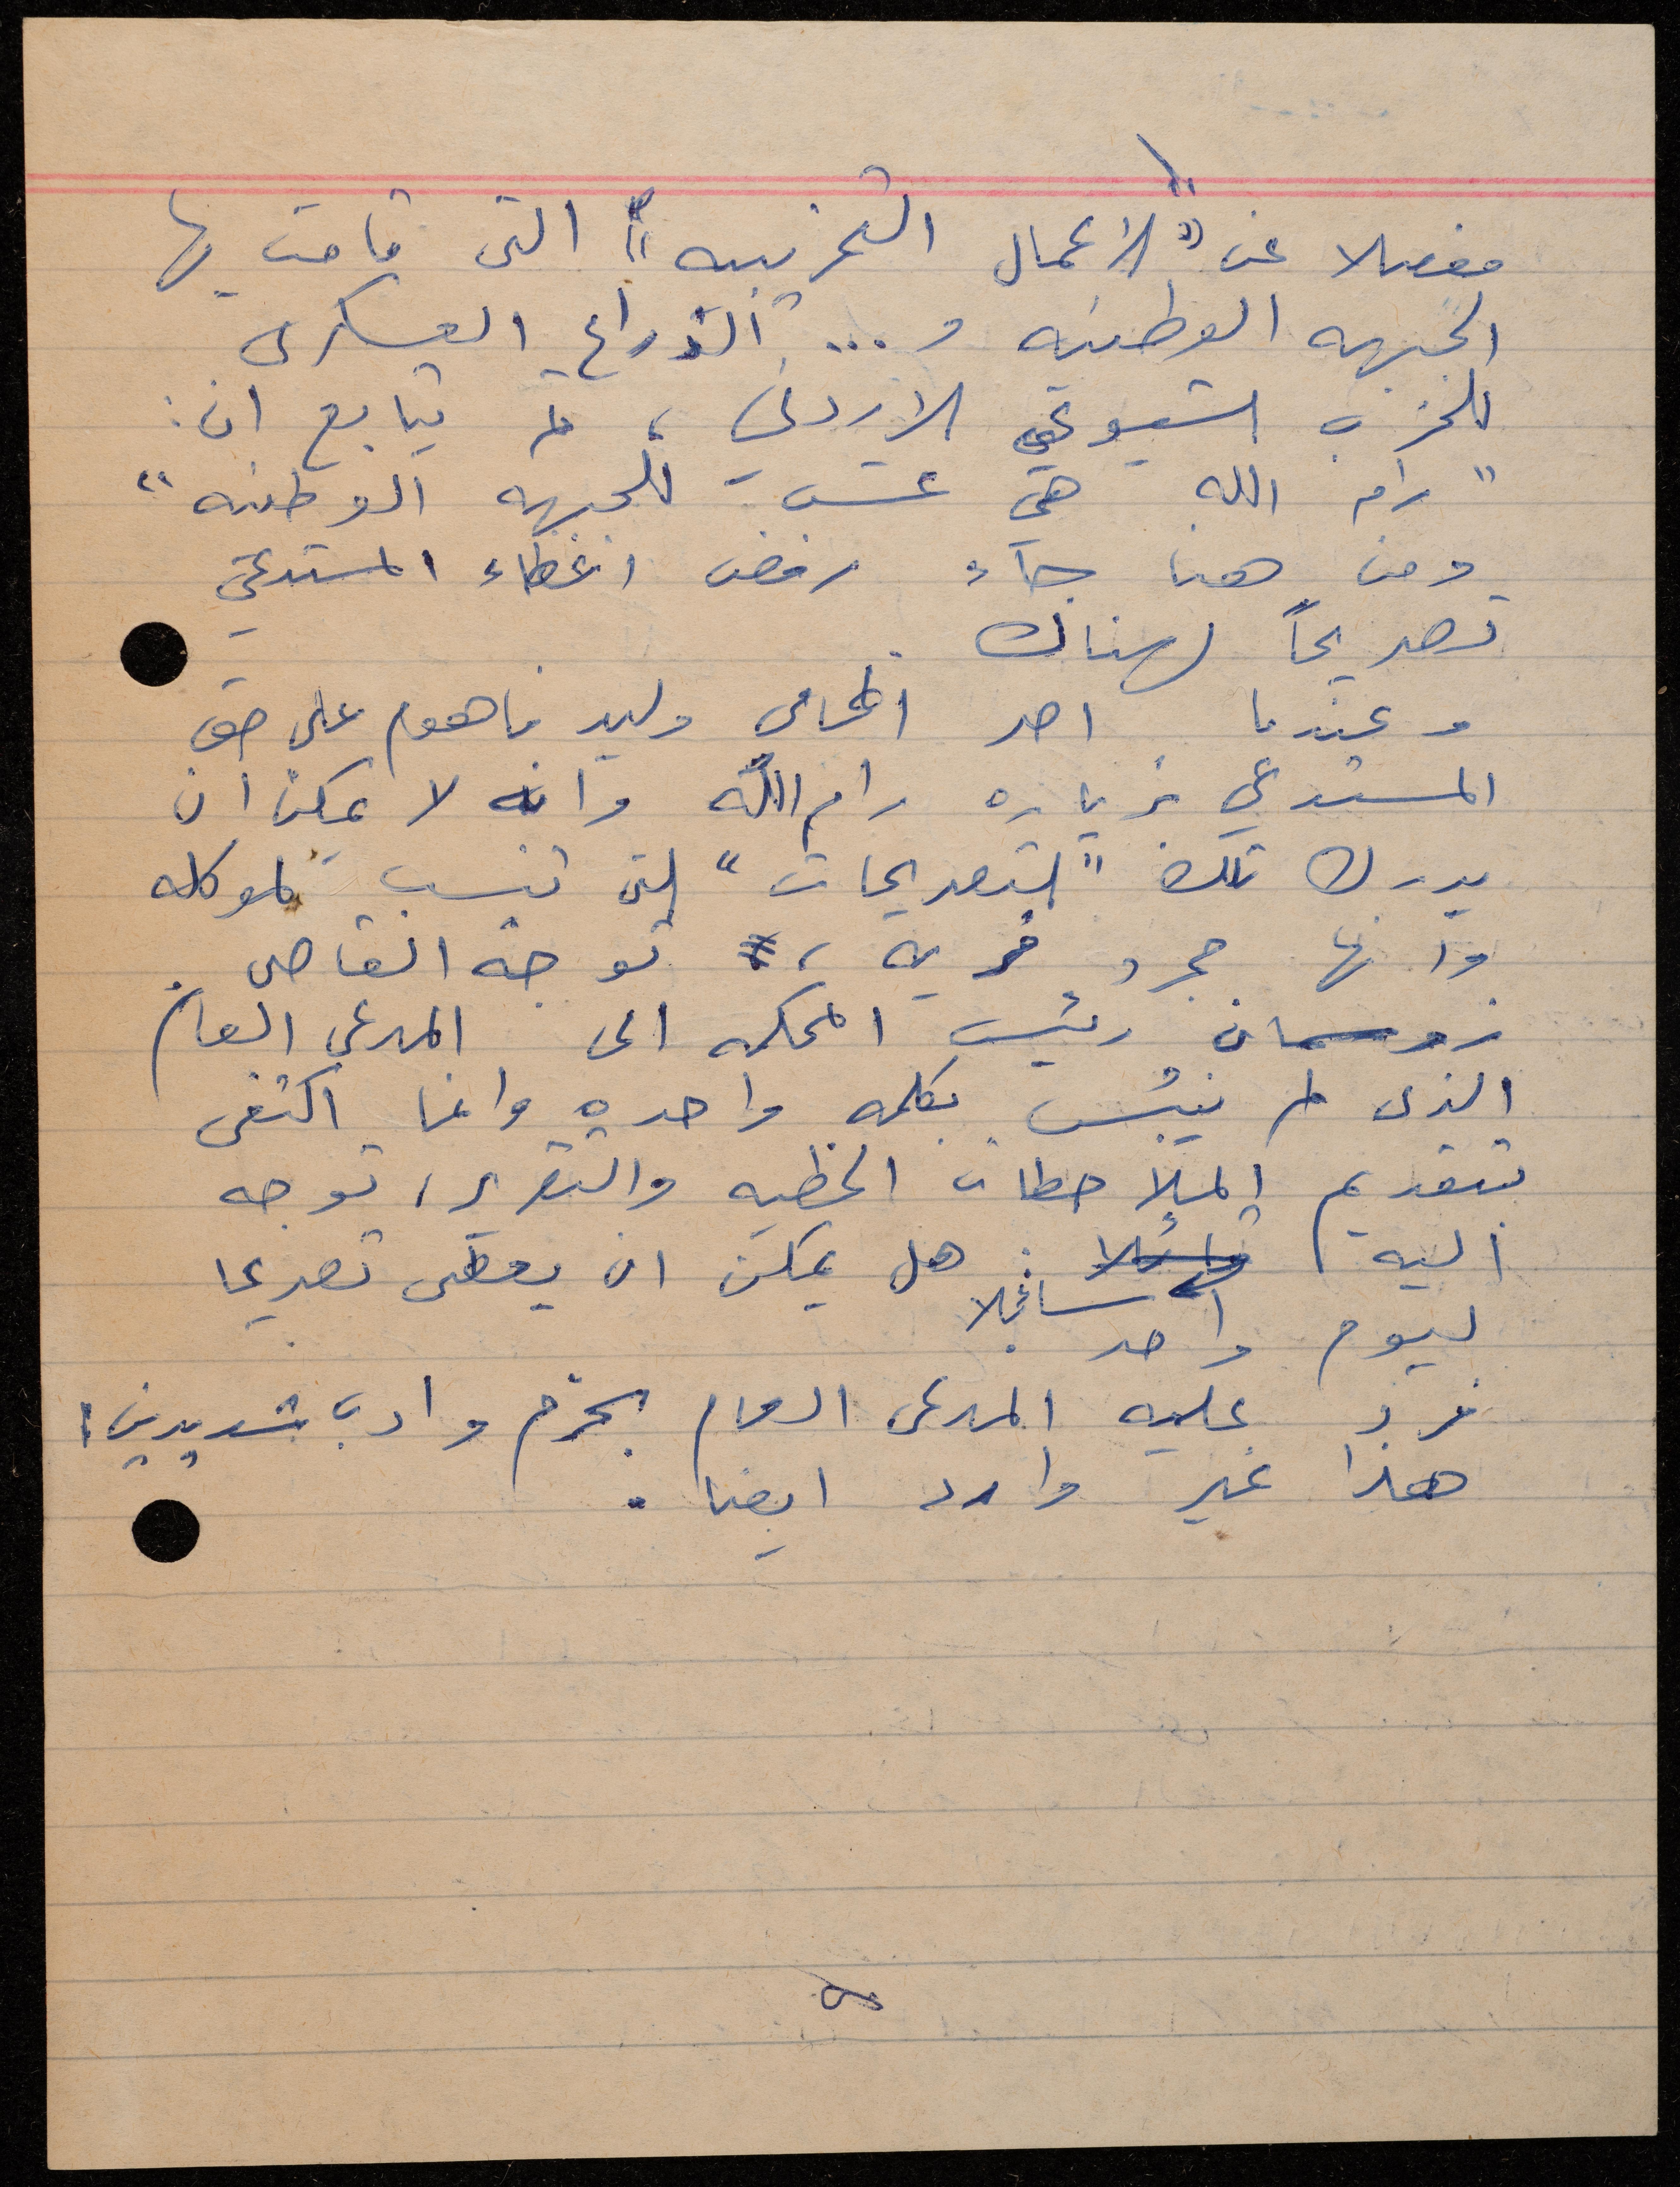 مفصلا عن "الاعمال التخريبيه" التى قامت بها
الجبهه الوطنيه و... الذراع العسكرى
للحزب الشيوعي الاردني، ثم يتابع ان:
"رام الله هي عش للجبهه الوطنيه"
ومن هنا جاء رفض اعطاء المستدعي
تصريحاً لهناك.
وعندما اصر المحامى وليد فاهوم على حق
المستدعي زياره رام الله وانه لا يمكن ان
يدرك تلك "التصريحات" التى تنسب لموكله
وانها مجرد فريه، توجه القاضى
زوسمان رئيس المحكمه الى المدعى العام
الذى لم ينبس بكلمه واحده وانما اكتفى
بتقديم الملاحظات الخطيه والتقرير، توجه
اليه قائلا: هل يمكن ان يعطى تصريحا
سائلا
ليوم واحد.
فرد عليه المدعى العام بحزم وادب شديدين:
هذا غير وارد ايضا.